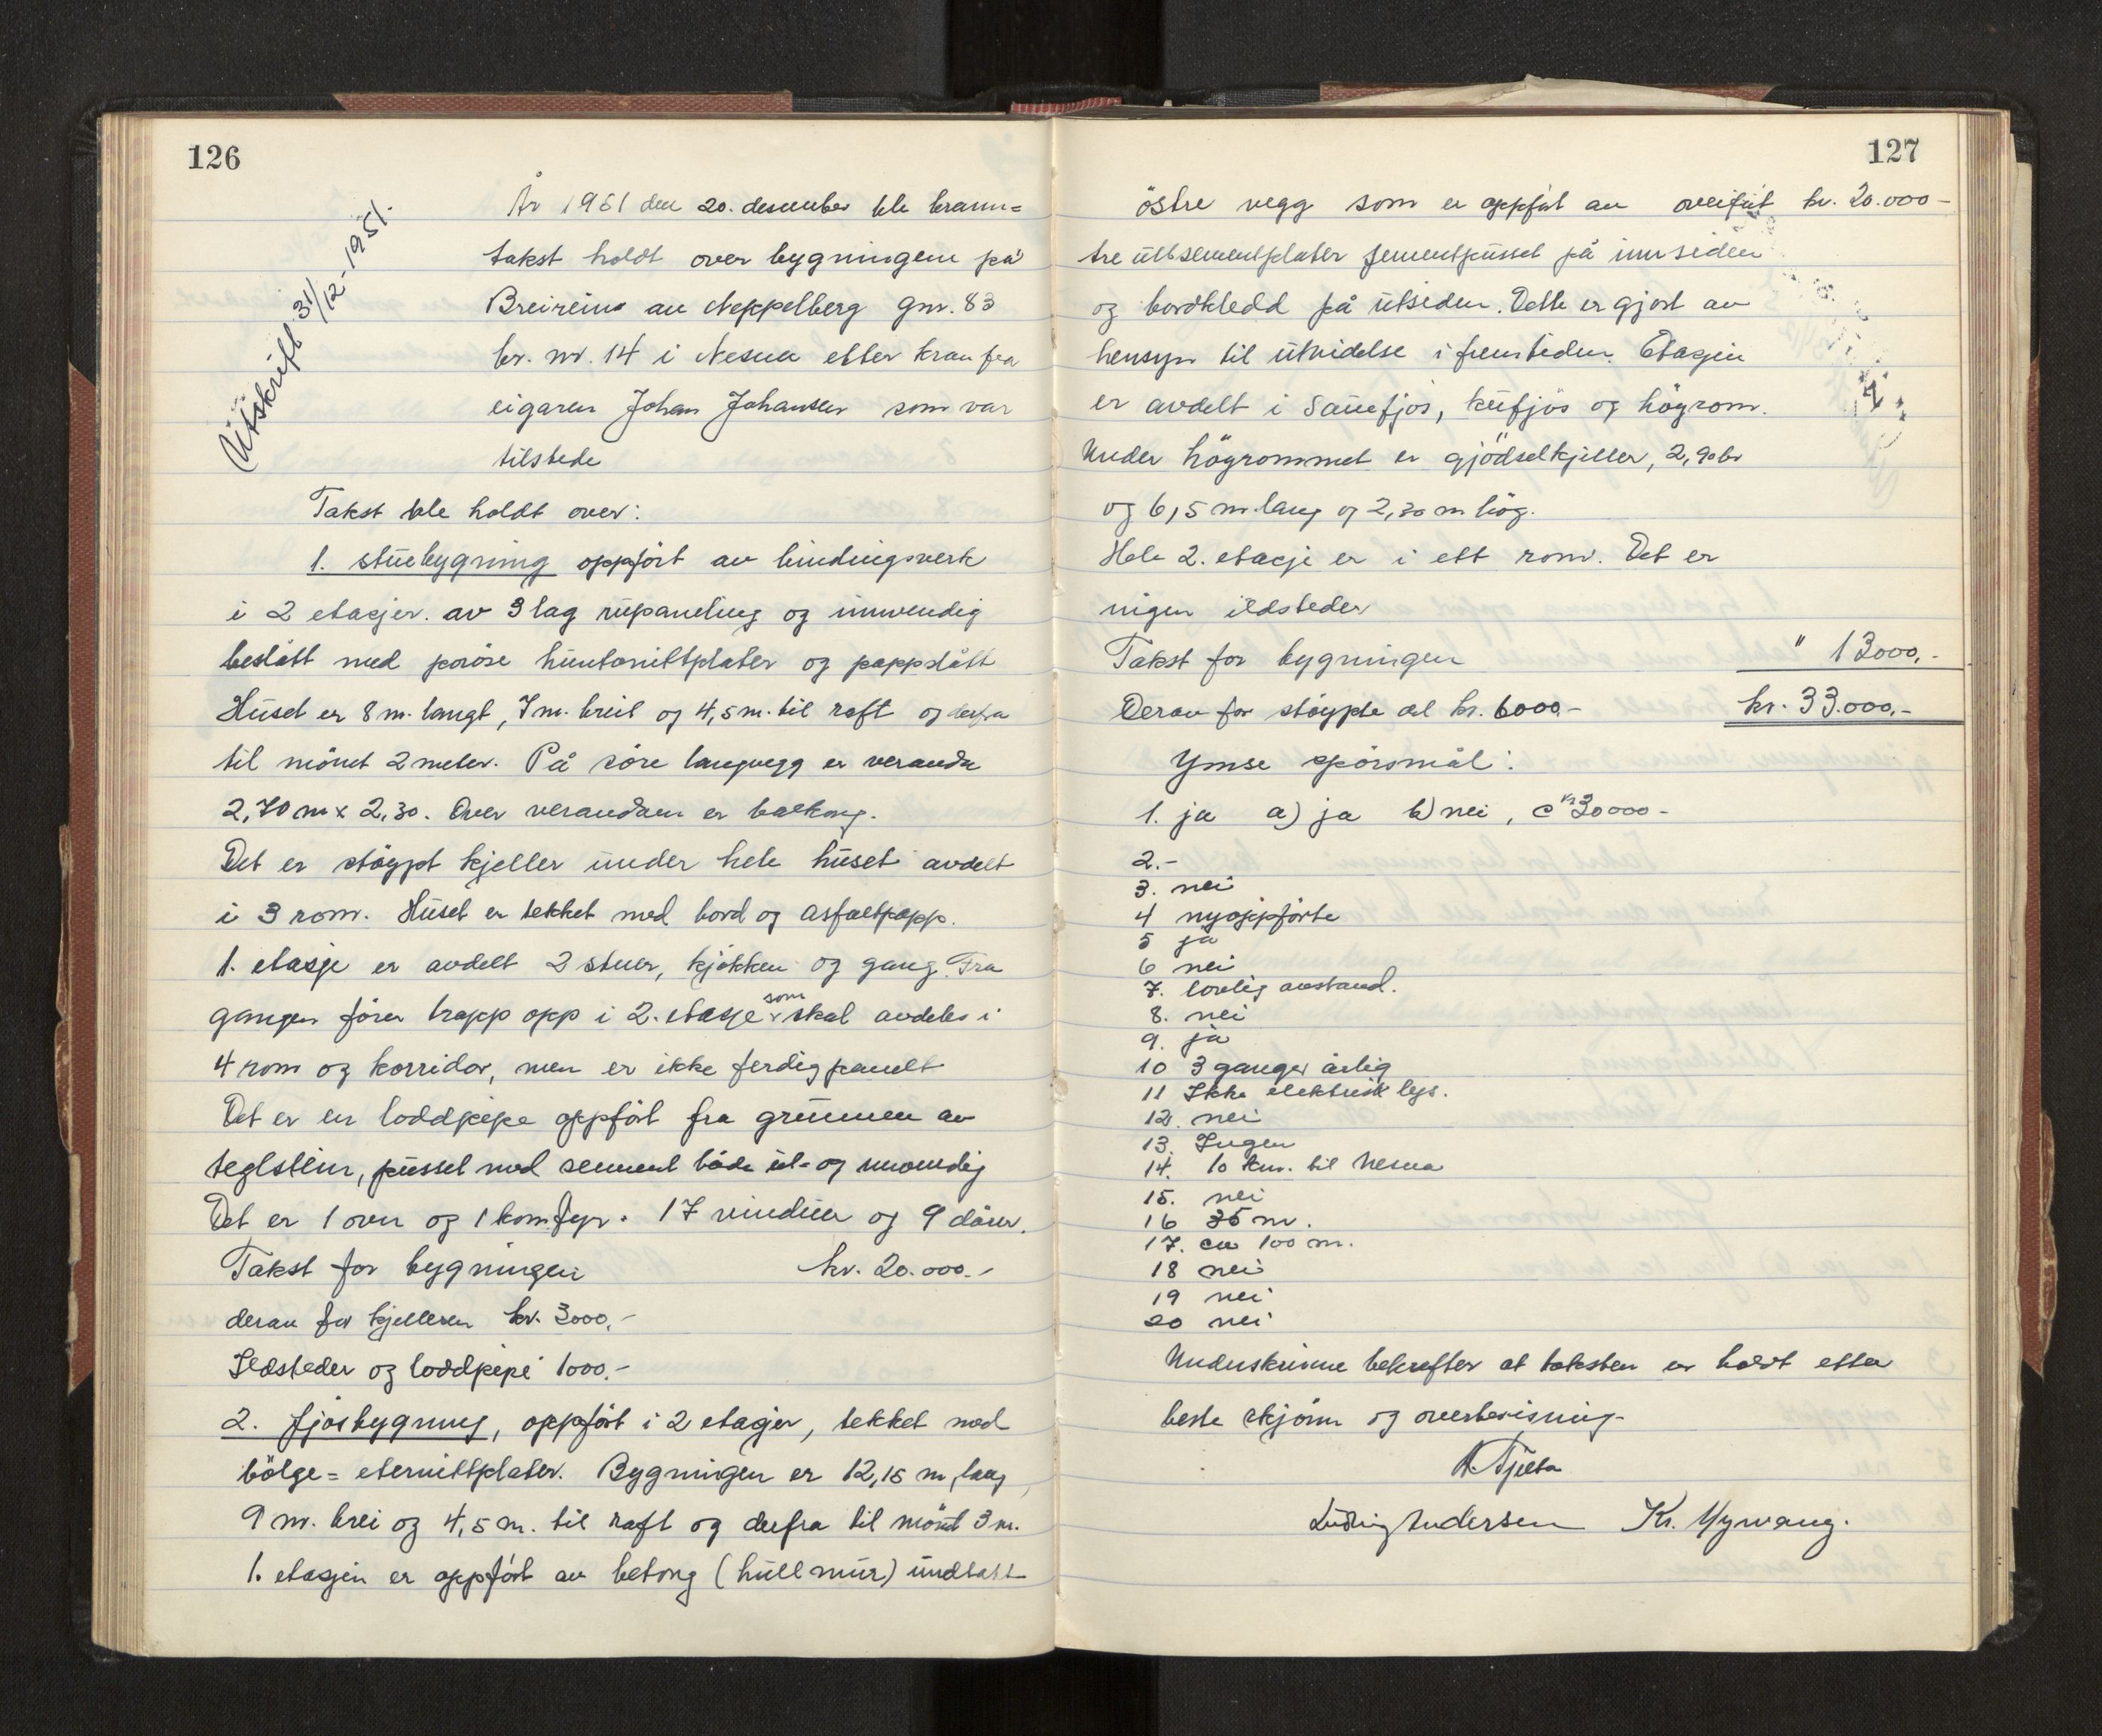 126
Utskrift 31/12-1951.
År 1951 den 20. desember ble brann=
takst holdt over bygningene på
Breireina av Neppelberg gnr. 83
br. nr. 14 i Nesna etter krav fra
eigaren Johan Johansen som var
tilstede
Takst ble holdt over:
1. stuebygning oppfört av bindingsverk
i 2 etasjer. av 3 lag rupaneling og innvendig
beslått med poröse huntonittplater og pappslått
Huset er 8 m. langt, 7 m. breit og 4,5 m. til raft og derfra
til mönet 2 meter. På söre langvegg er veranda
2,70 m x 2,30. Over verandaen er balkong.
Det er stöypt kjeller under hele huset avdelt
i 3 rom. Huset er tekket med bord og asfaltpapp.
1. etasje er avdelt 2 stuer, kjökken og gang. Fra
gangen förer trapp opp i 2. etasje som skal avdeles i
4 rom og korridor, men er ikke ferdig panelt
Det er en loddpipe oppfört fra grunnen av
teglstein, pusset med sement både ut- og innvendig
Det er 1 ovn og 1 komfyr. 17 vinduer og 9 dörer.
Takst for bygningen kr. 20.000.-
derav for kjelleren kr. 3000,-
Ildsteder og loddpipe 1000.-
2. fjösbygning, oppfört i 2 etasjer, tekket med
bölge= eternittplater. Bygningen er 12,15 m lang,
9 m. brei og 4,5 m. til raft og derfra til mönet 3 m.
1. etasjen er oppfört av betong (hullmur) undtatt
127
östre vegg som er oppfört av overfört kr. 20.000-
treullsementplater sementpusset på innsiden
og bordkledd på utsiden. Dette er gjort av
hensyn til utvidelse i fremtiden. Etasjen
er avdelt i sauefjös, kufjös og höyrom.
Under höyrommet er gjödselkjeller, 2,90 br
og 6,5 m lang og 2,30 m hög.
Hele 2. etasje er i ett rom. Det er
ingen ildsteder
Takst for bygningen " 13000,-
Derav for stöypte del kr. 6000.- kr. 33.000,-
Ymse spörsmål:
1. ja a) ja b) nei, c kr 30000-
2.-
3. nei
4 nyoppförte
5 ja
6 nei
7. lovlig avstand.
8. nei
9. ja
10 3 ganger årlig
11 Ikke elektrisk lys.
12. nei
13. Ingen
14. 10 km. til Nesna
15. nei
16 35 m.
17. ca 100 m.
18 nei
19 nei
20 nei
Underskrivne bekrefter at taksten er holdt etter
beste skjönn og overbevisning.
Ludvig Andersen Kr. Myrvang.